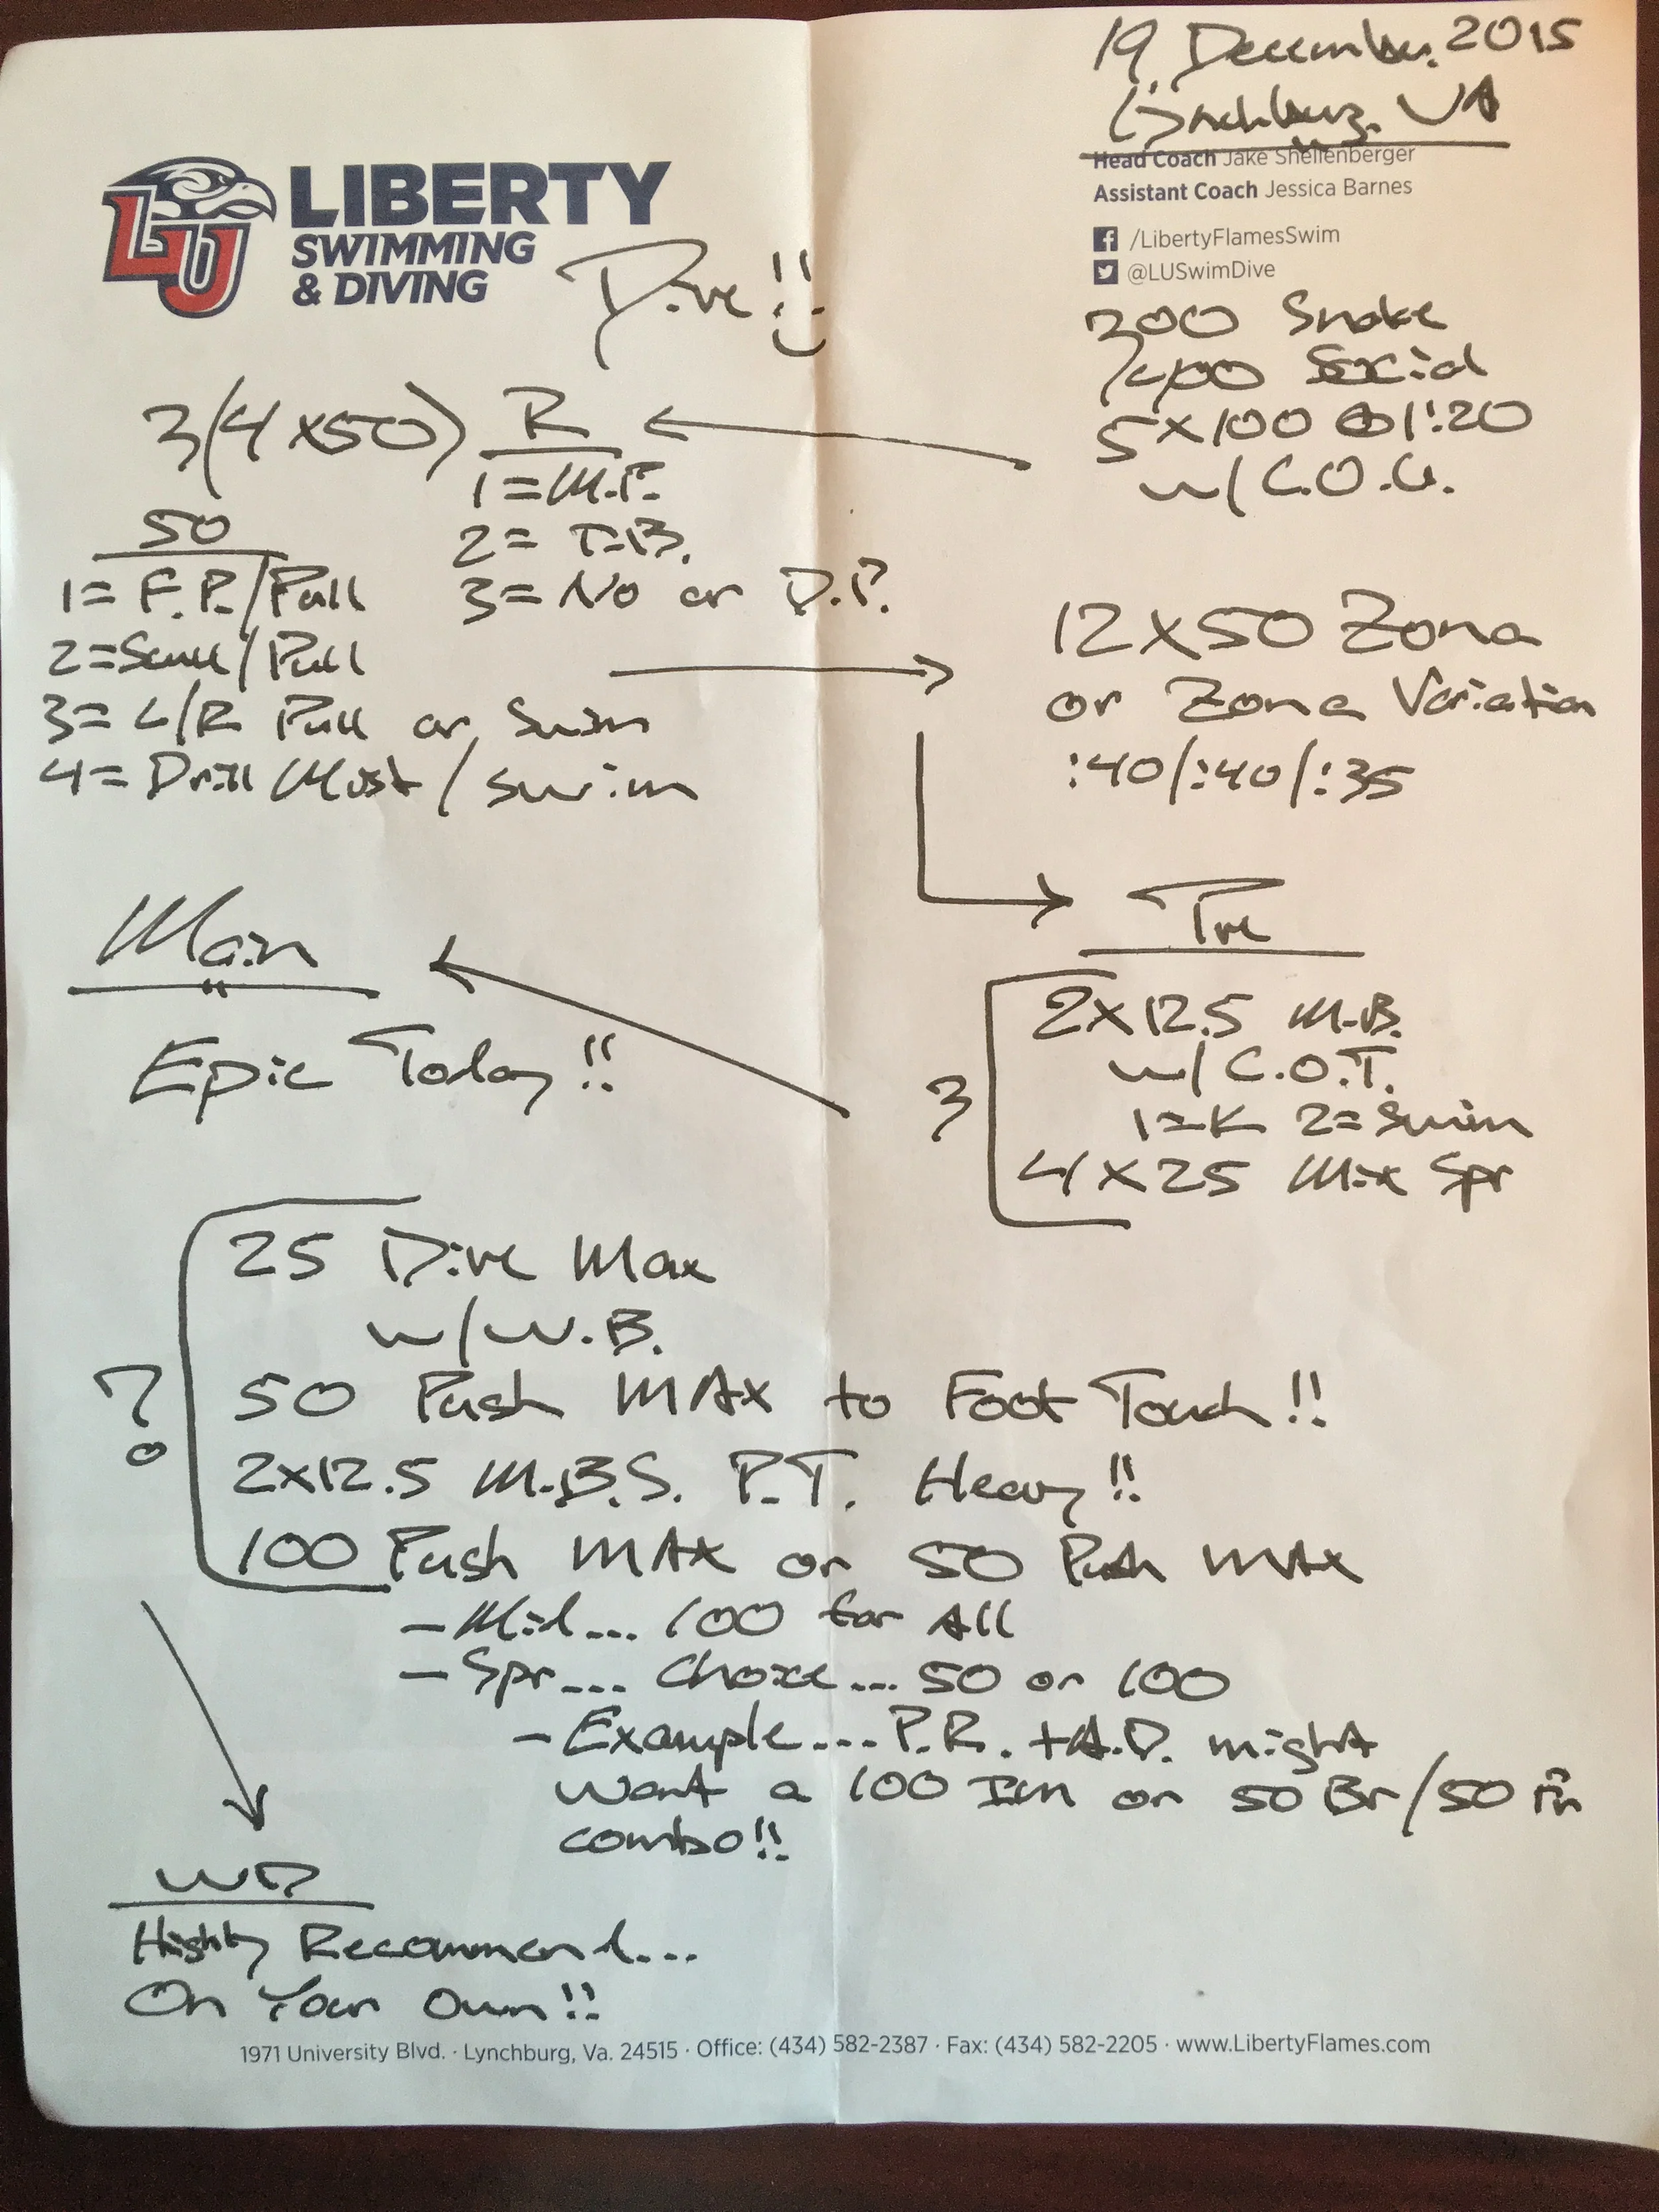 19 December 2015
Lynchburg, VA
Head Coach Jake Shellenberger
Assistant Coach Jessica Barnes
/LibertyFlamesSwim
@LUSwimDive
LU
LIBERTY
SWIMMING
& DIVING
Dive!!
300 Snake
400 Social
5x100 @ 1:20
w/ C.O.G.
3(4x50) R
1=M.P.
2= T.B.
3= No or D.P.
50
1= F.P./Pull
2=Scull/Pull
3= L/R Pull or Swim
4= Drill Most/Swim
12x50 Zona
or Zona Variation
:40/:40/:35
Pre
3
2x12.5 M.B.
w/ C.O.T.
1=K 2=Swim
4x25 Mix Spr
Main
Epic Today!!
?
25 Dive Max
w/ W.B.
50 Push MAX to Foot Touch!!
2x12.5 M.B.S. P.T. Heavy!!
100 Push MAX or 50 Push MAX
- Mid... 100 for All
- Spr... Choice... 50 or 100
- Example... P.R. + A.D. might
want a 100 Im or 50 Br/50 Fr
combo!!
WD
Highly Recommend...
On Your Own!!
1971 University Blvd. · Lynchburg, Va. 24515 · Office: (434) 582-2387 · Fax: (434) 582-2205 · www.LibertyFlames.com